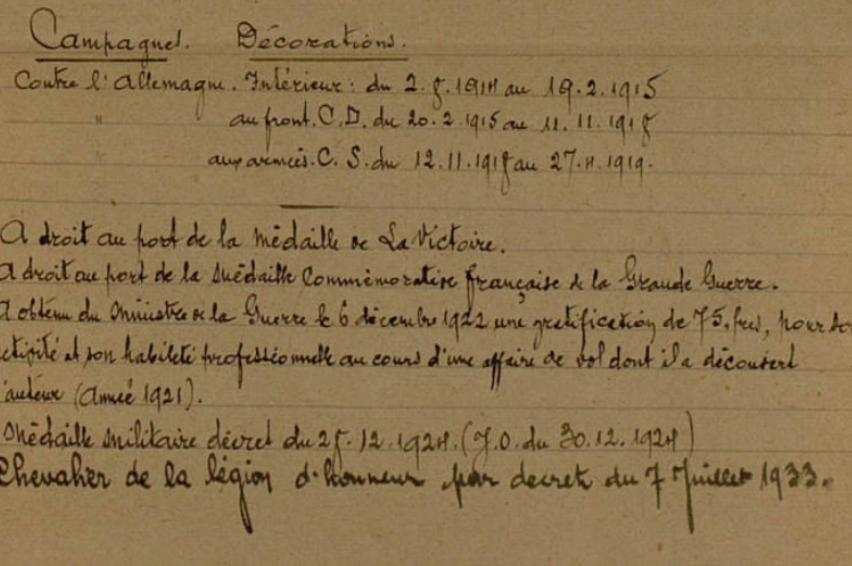 Campagnes. Décorations.
Contre l'Allemagne. Intérieur : du 2.8.1914 au 19.2.1915
" au front. C.D. du 20.2.1915 au 11.11.1918
" aux armées. C.S. du 12.11.1918 au 27.4.1919.
A droit au port de la médaille de La Victoire.
A droit au port de la médaille Commémorative française de la Grande Guerre.
A obtenu du Ministre de la Guerre le 6 décembre 1922 une gratification de 75 frcs, pour so
ctivité et son habileté professionnelle au cours d'une affaire de vol dont il a découvert
'auteur (Année 1921).
Médaille militaire décret du 28.12.1924. (J.O. du 30.12.1924)
Chevalier de la légion d'honneur par decret du 7 Juillet 1933.